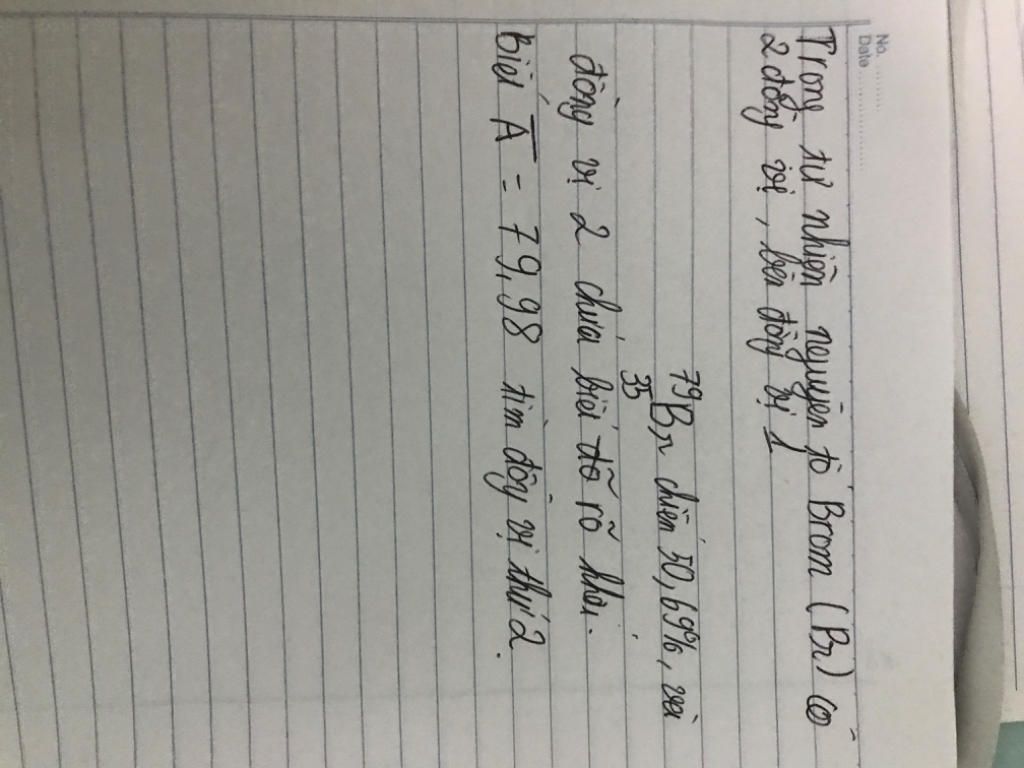 No. ..........
Date ..................
Trong tự nhiên nguyên tố Brom (Br) có
2 đồng vị, bên đồng vị 1
79
35 Br chiếm 50,69%, với
đồng vị 2 chưa biết rõ hơn.
Biết A̅ = 79,98 tìm đồng vị thứ 2.